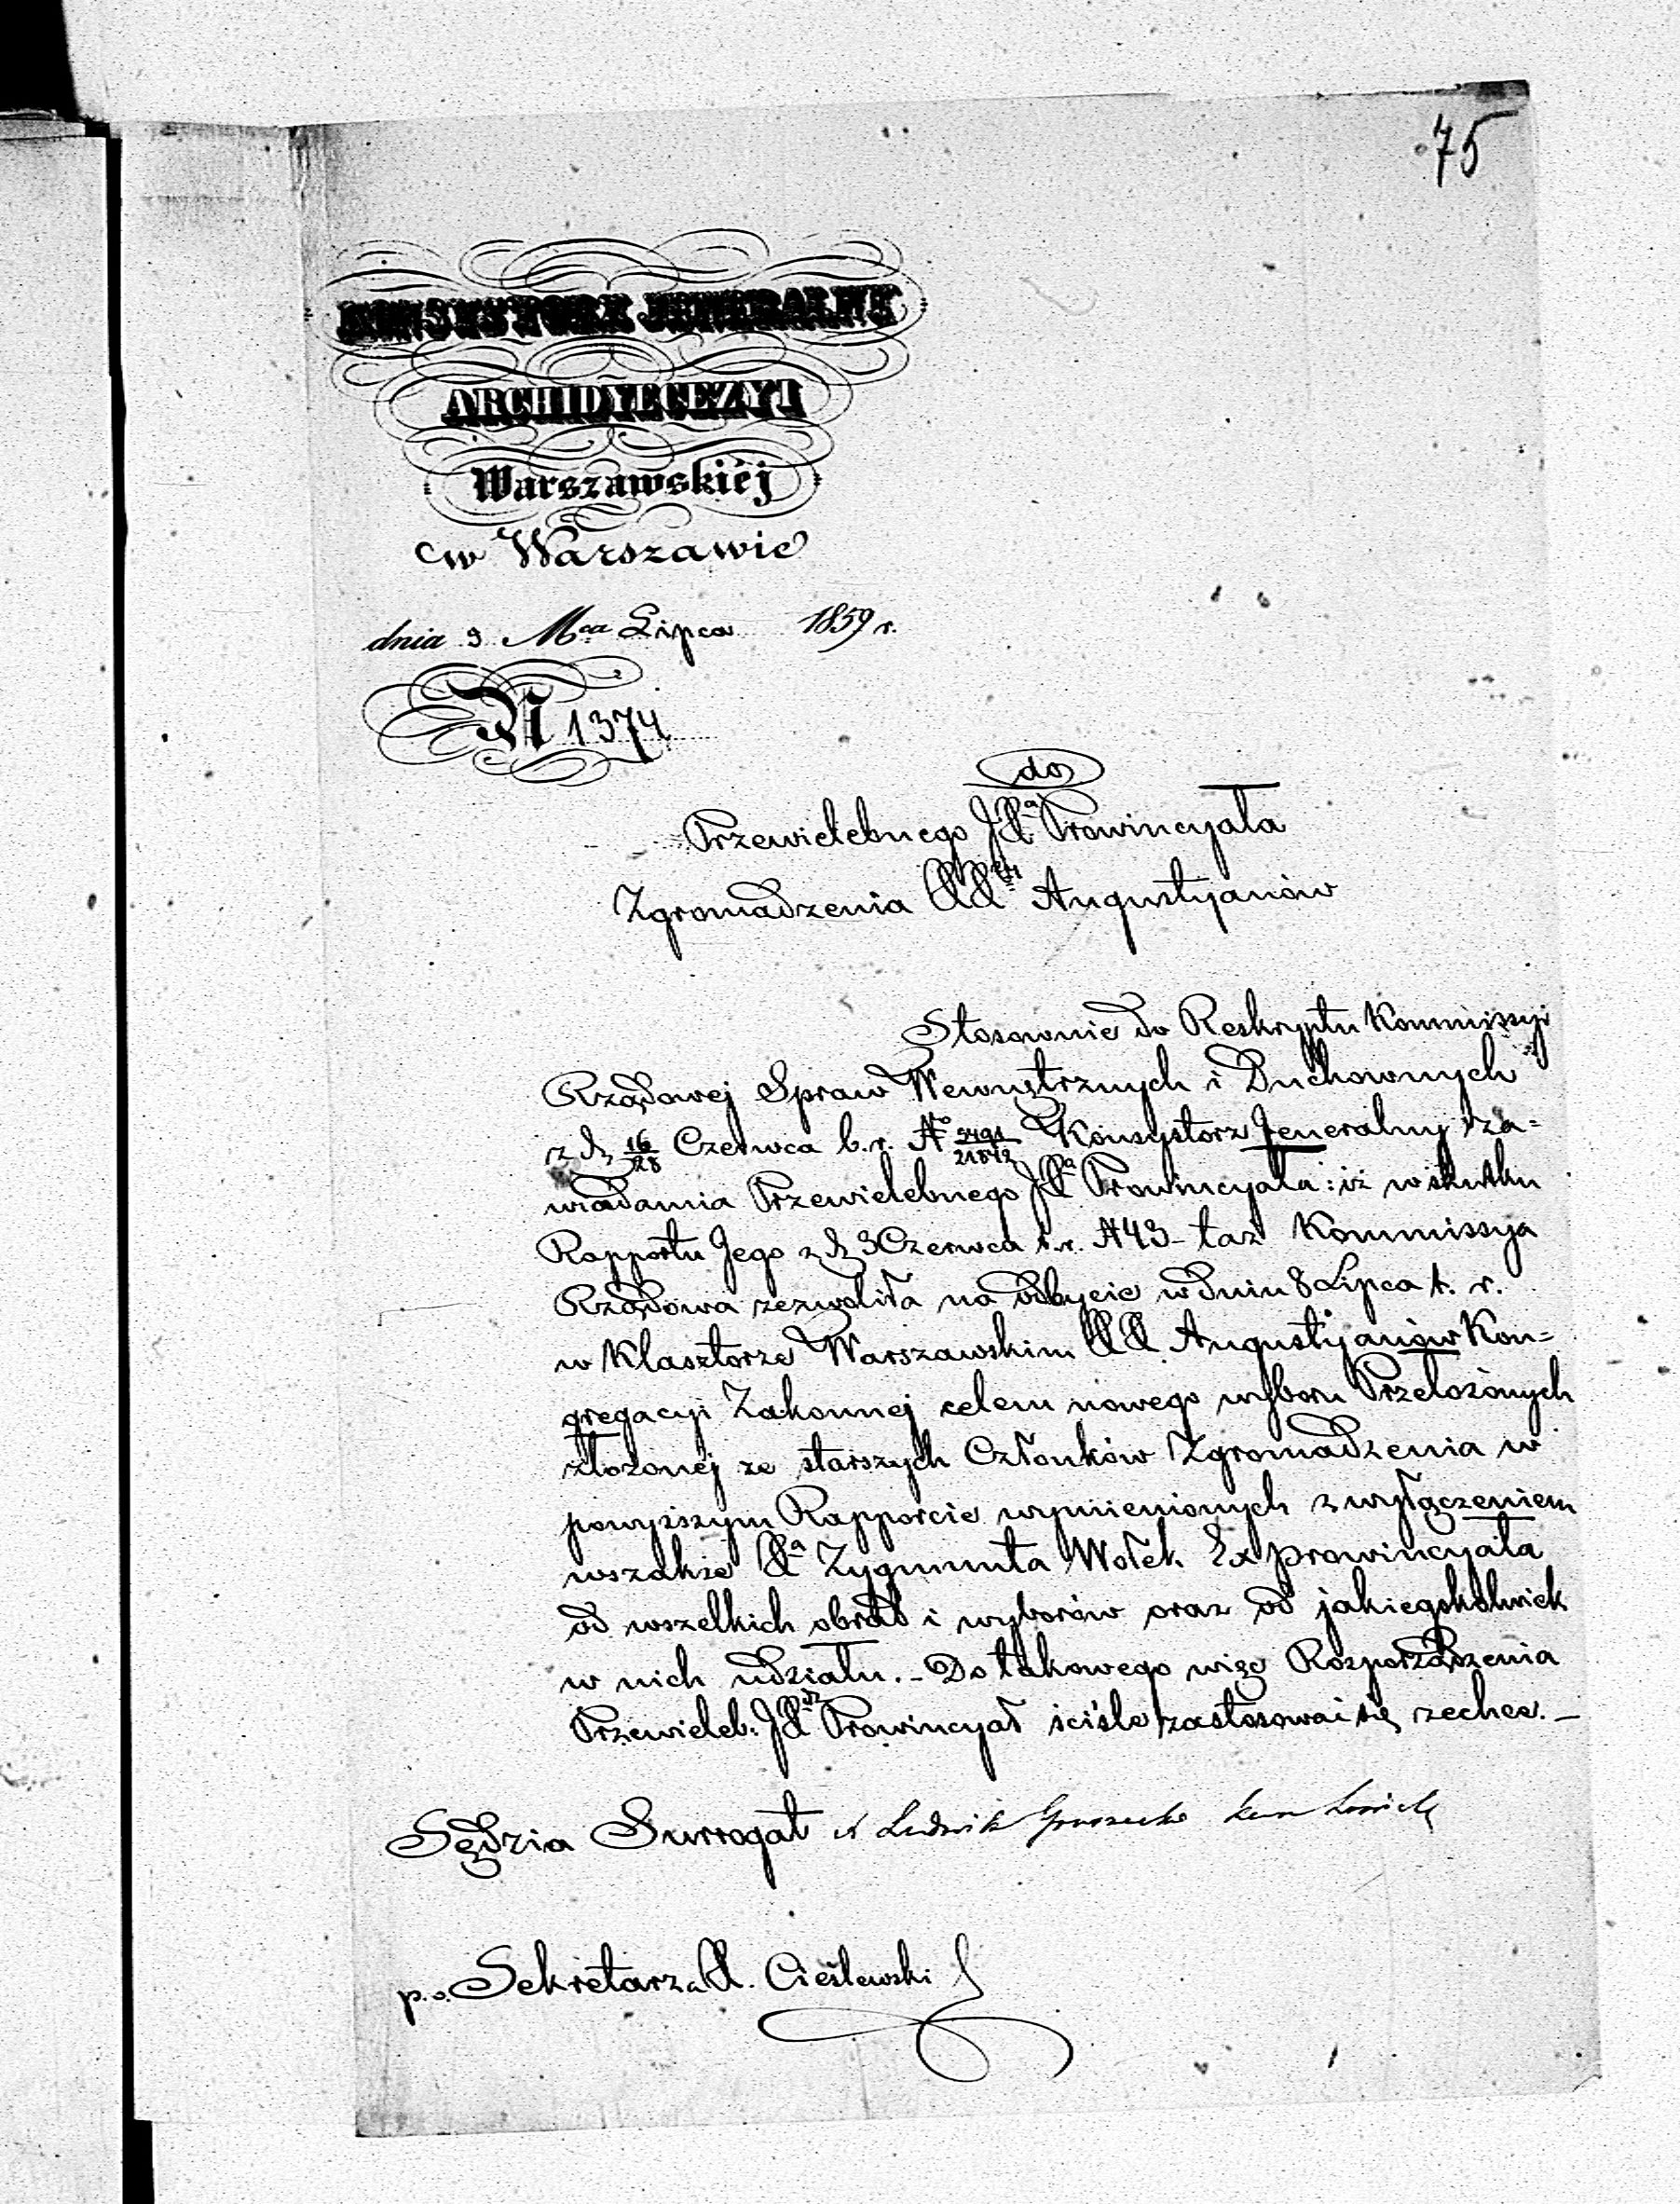 75
KONSYSTORZ JENERALNY
ARCHIDYECEZYI
Warszawskiéj
w Warszawie
dnia 9 Mca Lipca 1859 r.
N 1374
do
Przewielebnego JXa Prowincyała
Zgromadzenia XXży Augustyjanów
Stosownie do Reskryptu Kommissyi
Rządowej Spraw Wewnętrznych i Duchownych
z d. 16/28 Czerwca b. r. No Konsystorz Jeneralny za-
wiadamia Przewielebnego JXa Prowincyała: iż w skutku
Rapportu Jego z d. 3 Czerwca t. r. N 43 - taż Kommissya
Rządowa zezwoliła na odbycie w dniu 8 Lipca t. r.
w Klasztorze Warszawskim XX. Augustyjanów Kon-
gregacyi Zakonnej celem nowego wyboru Przełożonych
złożonej ze starszych Członków Zgromadzenia w
powyższym Rapporcie wymienionych z wyłączeniem
wszakże Xa Zygmunta Wołek Ex prowincyała
od wszelkich obrad i wyborów oraz od jakiegokolwiek
w nich udziału. - Do takowego więc Rozporządzenia
Przewieleb. JXdz Prowincyał ściśle zastosować się zechce. -
Sędzia Surrogat Ludwik
p. o. Sekretarza X. Cieślewski